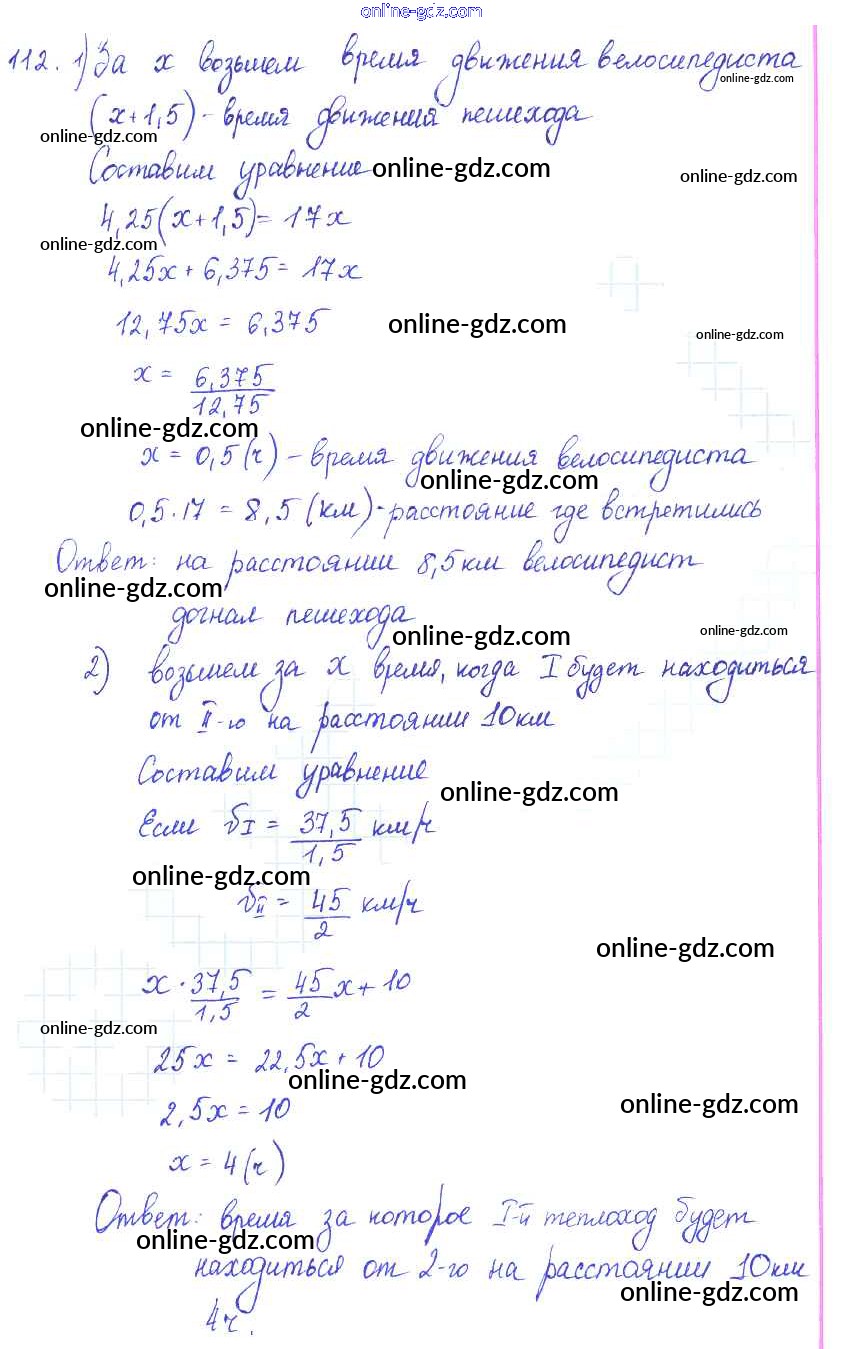 online-gdz.com
112. 1) За x возьмем время движения велосипедиста
online-gdz.com
(x+1,5) - время движения пешехода
online-gdz.com
Составим уравнение online-gdz.com online-gdz.com
4,25(x+1,5)= 17x
online-gdz.com
4,25x + 6,375 = 17x
12,75x = 6,375 online-gdz.com online-gdz.com
x = 6,375/12,75
online-gdz.com
x = 0,5 (ч) - время движения велосипедиста
online-gdz.com
0,5·17 = 8,5 (км) - расстояние где встретились
Ответ: на расстоянии 8,5 км велосипедист
online-gdz.com
догнал пешехода
online-gdz.com online-gdz.com
2) возьмем за x время, когда I будет находиться
от II-го на расстоянии 10 км
Составим уравнение
online-gdz.com
Если v_I = 37,5/1,5 км/ч
online-gdz.com
v_II = 45/2 км/ч
online-gdz.com
x · 37,5/1,5 = 45/2 x + 10
online-gdz.com
25x = 22,5x + 10
online-gdz.com
2,5x = 10 online-gdz.com
x = 4 (ч)
Ответ: время за которое I-й теплоход будет
online-gdz.com
находиться от 2-го на расстоянии 10 км
online-gdz.com
4 ч.